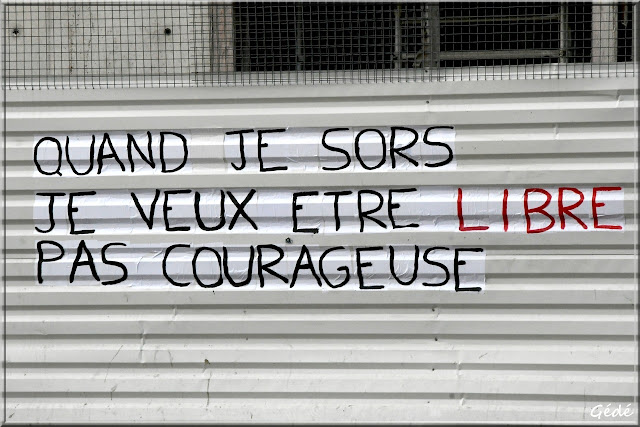 QUAND JE SORS
JE VEUX ETRE LIBRE
PAS COURAGEUSE
Gédé